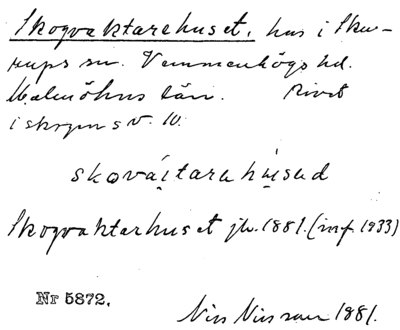 Skogvaktarehuset. hus i Sku-
rups sn. Vemmenhögs hd.
Malmöhus län. Rivet
i skogen s v. 10.
skováitarahúsad
Skogvaktarhuset jb. 1881. (inf. 1933)
Nr 5872.
Nils Nilsson 1881.